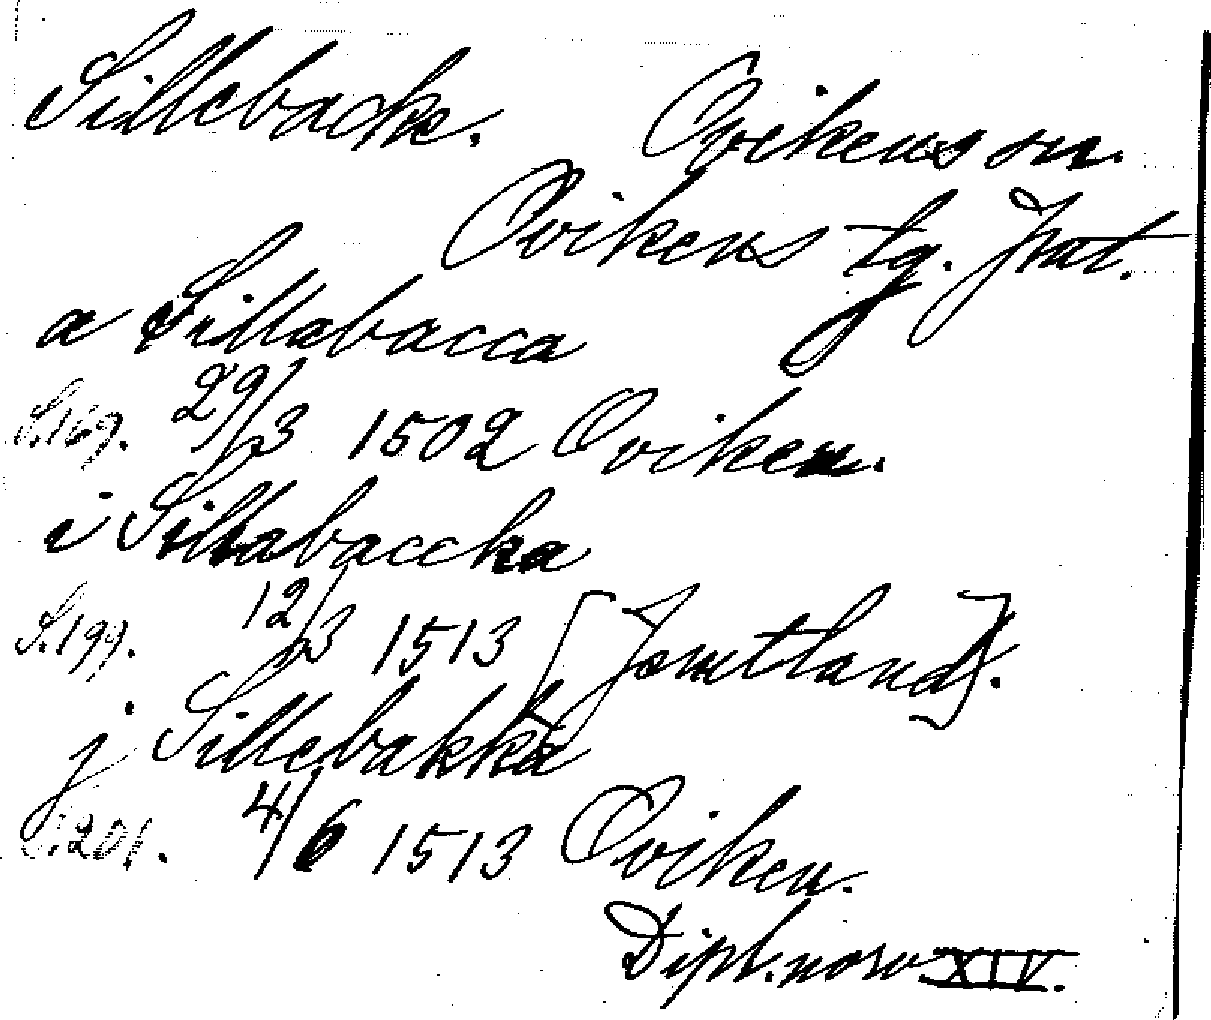 Sillebacke. Ovikens sn.
Ovikens tg. Jmt.
a Sillabacca
S.169. 29/3 1502 Oviken.
i Sillabaccka
S.199. 12/3 1513 [Jomtland].
j Sillebakka
S.201. 4/6 1513 Oviken.
Dipl. norv XIV.